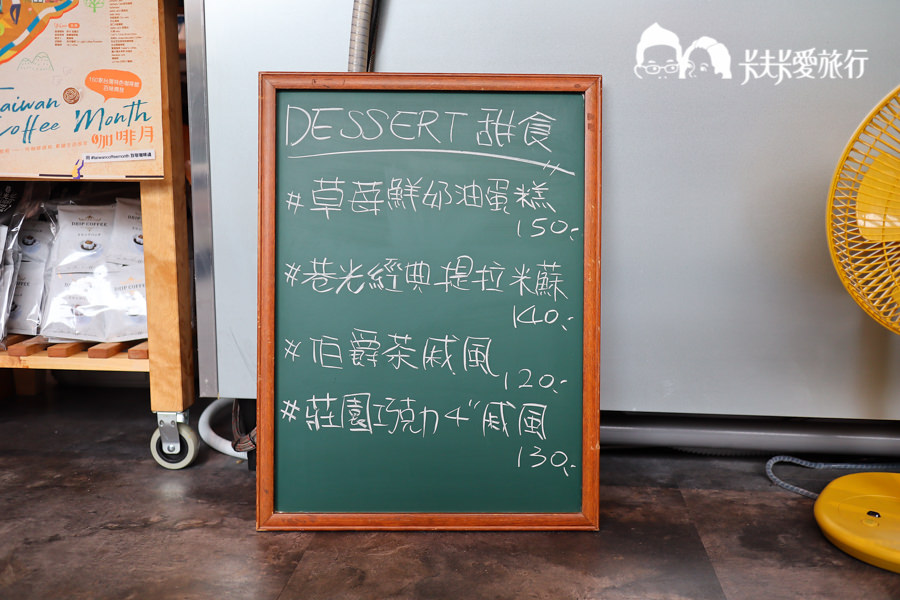 卡夫卡愛旅行
Taiwan
Coffee Month
咖啡月
DRIP COFFEE
DRIP COFFEE
DESSERT 甜食
#草莓鮮奶油蛋糕
150.-
#巷光經典提拉米蘇
140.-
#伯爵茶戚風
120.-
#莊園巧克力4"戚風
130.-